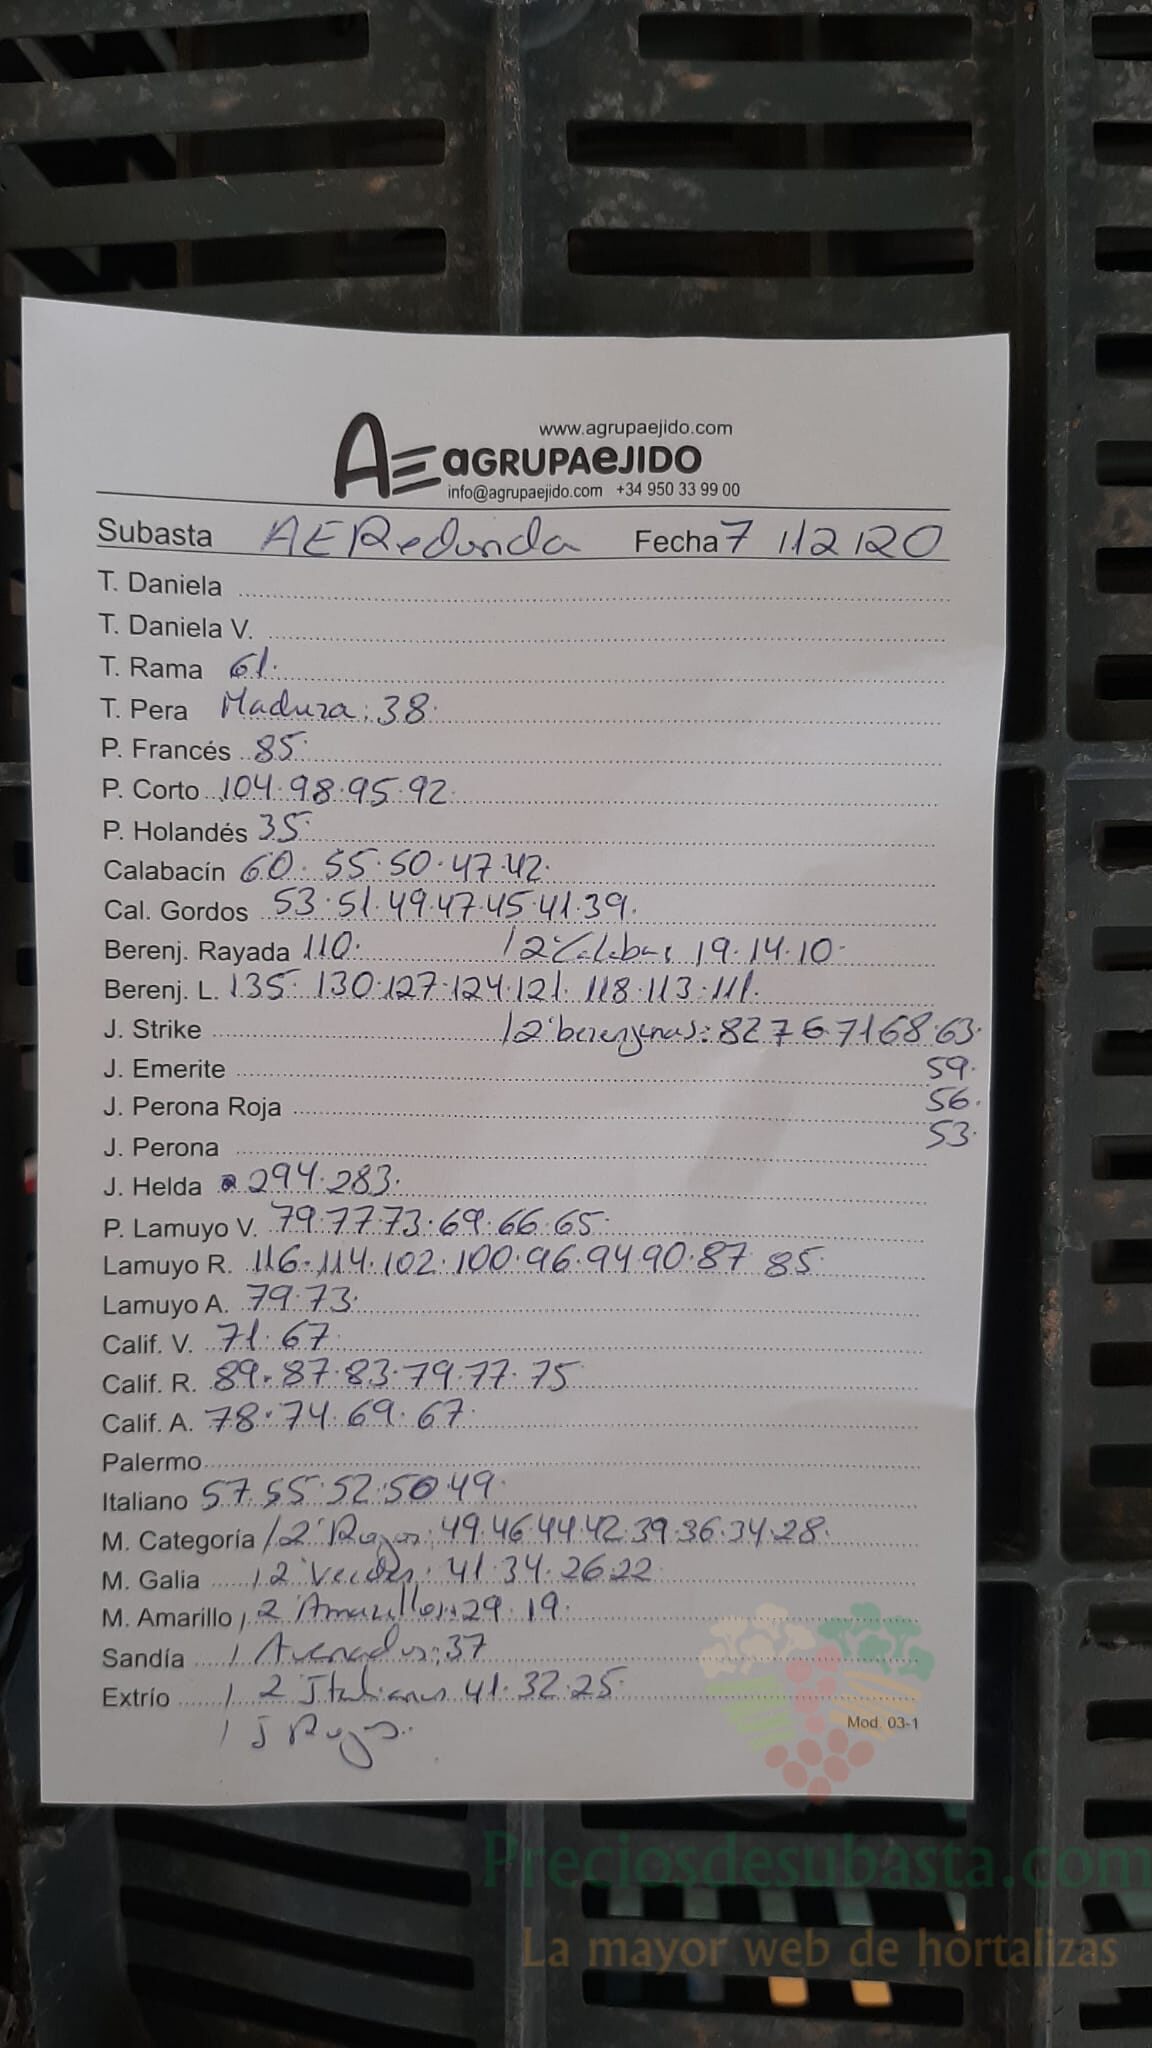 www.agrupaejido.com
AE aGRUPAeJIDO
info@agrupaejido.com +34 950 33 99 00
Subasta AE Redonda Fecha 7 / 12 / 20
T. Daniela
T. Daniela V.
T. Rama 61.
T. Pera Madura: 38.
P. Francés 85.
P. Corto 104.98.95.92.
P. Holandés 35.
Calabacín 60.55.50.47.42.
Cal. Gordos 53.51.49.47.45.41.39.
Berenj. Rayada 110. / 2ª Calabas 19.14.10.
Berenj. L. 135.130.127.124.121.118.113.111.
J. Strike / 2ª berenjenas: 82 76 71 68.63.
J. Emerite 59.
J. Perona Roja 56.
J. Perona 53.
J. Helda 294.283.
P. Lamuyo V. 79.77.73.69.66.65.
Lamuyo R. 116.114.102.100.96.94.90.87 85.
Lamuyo A. 79.73.
Calif. V. 71.67.
Calif. R. 89.87.83.79.77.75
Calif. A. 78.74.69.67.
Palermo
Italiano 57.55.52.50.49.
M. Categoría / 2ª Rojos: 49.46.44.42.39.36.34.28.
M. Galia / 2 Verdes: 41.34.26.22
M. Amarillo / 2 Amarillos: 29.19.
Sandía / Avenados: 37
Extrío / 2 Italianos 41.32.25.
/ J Rojos.
Mod. 03-1
Preciosdesubasta.com
La mayor web de hortalizas